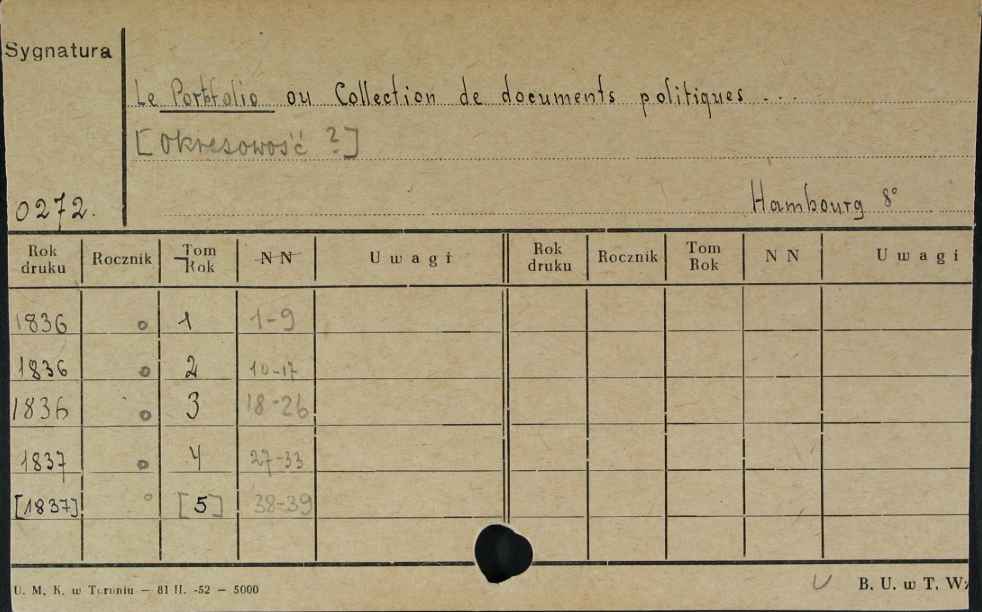 Sygnatura
Le Portfolio ou Collection de documents politiques ...
[Okresowość ?]
0272.
Hambourg 8°
Rok druku Rocznik Tom Rok N N Uwagi Rok druku Rocznik Tom Rok N N Uwagi
1836 o 1 1-9
1836 o 2 10-17
1836 o 3 18-26
1837 o 4 27-33
[1837] o [5] 38-39
U. M. K. w Toruniu — 81 II. -52 — 5000
B. U. w T. Wz